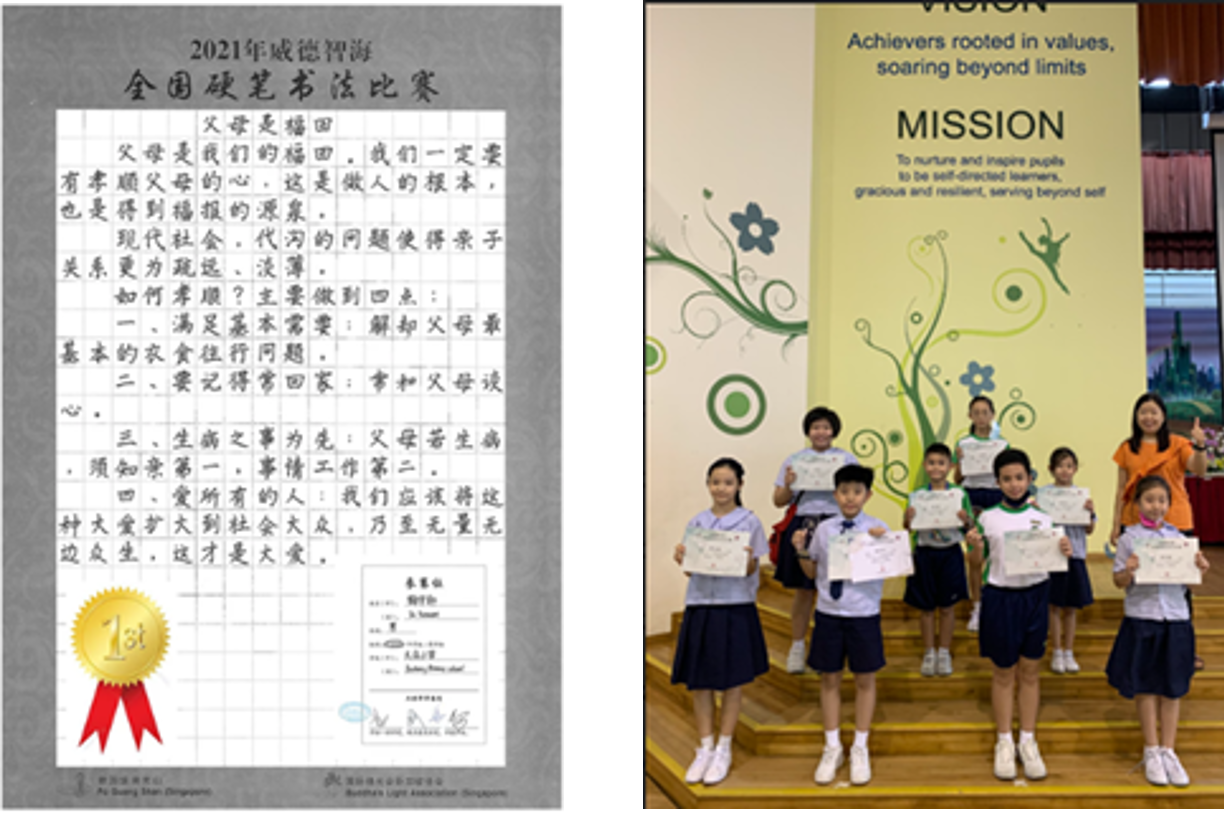 2021年威德智海
全国硬笔书法比赛
父母是福田
父母是我们的福田。我们一定要
有孝顺父母的心。这是做人的根本，
也是得到福报的源泉。
现代社会，代沟的问题使得亲子
关系更为疏远、淡薄。
如何孝顺？主要做到四点：
一、满足基本需要：解却父母最
基本的衣食住行问题。
二、要记得常回家：常和父母谈
心。
三、生病之事为先：父母若生病
，须知亲第一，事情工作第二。
四、爱所有的人：我们应该将这
种大爱扩大到社会大众，乃至无量无
边众生，这才是大爱。
1st
参赛组
Fo Guang Shan (Singapore)
Buddha's Light Association (Singapore)
VISION
Achievers rooted in values,
soaring beyond limits
MISSION
To nurture and inspire pupils
to be self-directed learners,
gracious and resilient, serving beyond self